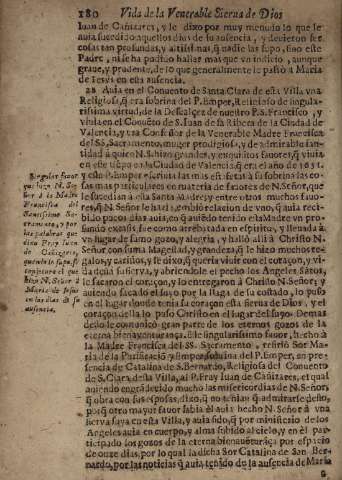 180 Vida de la Venerable Sierua de Dios
Iuan de Cañizares, y le dixo por muy menudo lo que le
auia sucedido aquellos dias de su ausencia, y deuieron ser
cosas tan profundas, y altissimas, q̃ nadie las supo, sino este
Padre, ni se ha podido hallar mas que vn indicio, aunque
graue, y prudente, de lo que generalmente le passò à Maria
de Iesus en esta ausencia.
28 Auia en el Conuento de Santa Clara de esta Villa vna
Religiosa, q̃ era sobrina del P. Emper, Religioso de singula-
rissima virtud, de la Descalçez de nuestro P.S. Francisco, y
viuia en el Conuẽto de S. Iuan de la Ribera de la Ciudad de
Valencia, y era Confessor de la Venerable Madre Francisca
del SS. Sacramento, muger prodigiosa, y de admirable san-
tidad à quien N. S. hizo grandes, y exquisitos fauores, q̃ viuia
en este tiẽpo en la Ciudad de Valencia q̃ era el año de 1631.
y el P. Emper escriuia las mas estafetas à su sobrina las co-
sas mas particulares en materia de fauores de N. Señor, que
le sucedian à esta Santa Madre; y entre otros muchos fauo-
res, q̃ N. Señor le hazia, le embiò relacion de vno, q̃ auia reci-
bido pocos dias auia, en q̃ auiẽdo tenido esta Madre vn pro-
fundo extasis, fue como arrebatada en espiritu, y lleuada à
vn lugar de sumo gozo, y alegria, y hallò alli à Christo N.
Señor con suma Magestad, y grandeza, q̃ le hizo muchos re-
galos, y cariños, y le dixo, q̃ queria viuir con el coraçon, y vi-
da de su sierua, y abriendole el pecho los Angeles Sãtos,
le sacaron el coraçon, y lo entregaron à Christo N. Señor; y
auiendo sacado el suyo por la llaga de su costado, lo puso
en el lugar donde tenia su coraçon esta Sierua de Dios, y el
coraçon della lo puso Christo en el lugar del suyo. Demas
desto le comunicò gran parte de los eternos gozos de la
eterna bienauenturança. Este singularissimo fauor, hecho à
la Madre Francisca del SS. Sacramento, refiriò Sor Ma-
ria de la Purificaciõ y Emper sobrina del P. Emper, en pre-
sencia de Catalina de S. Bernardo, Religiosa del Conuento
de S. Clara desta Villa, al P. Fray Iuan de Cañizares, el qual
auiendo engrãdecido mucho las misericordias de N. Señor,
q̃ obra con sus esposas, dixo, q̃ no teniã q̃ admirarse desso,
porq̃ otro mayor fauor sabia èl auia hecho N. Señor à vna
sierua suya en esta Villa, y auia sido, q̃ por ministerio de los
Angeles auia en cuerpo, y alma subido al cielo, y en el par-
ticipado los gozos de la eterna bienauẽturãça por espacio
de onze dias, por lo qual la dicha Sor Catalina de San Ber-
nardo, por las noticias q̃ auia tenido de la ausencia de Maria
Singular fauor
que hizo N. Se-
ñor à la Madre
Francisca del
Santissimo Sa-
cramento, y por
las palabras que
dixo Fray Iuan
de Cañizares,
quando lo supo, se
conjetura el que
hizo N. Señor à
Maria de Iesus
en los dias de su
ausencia.